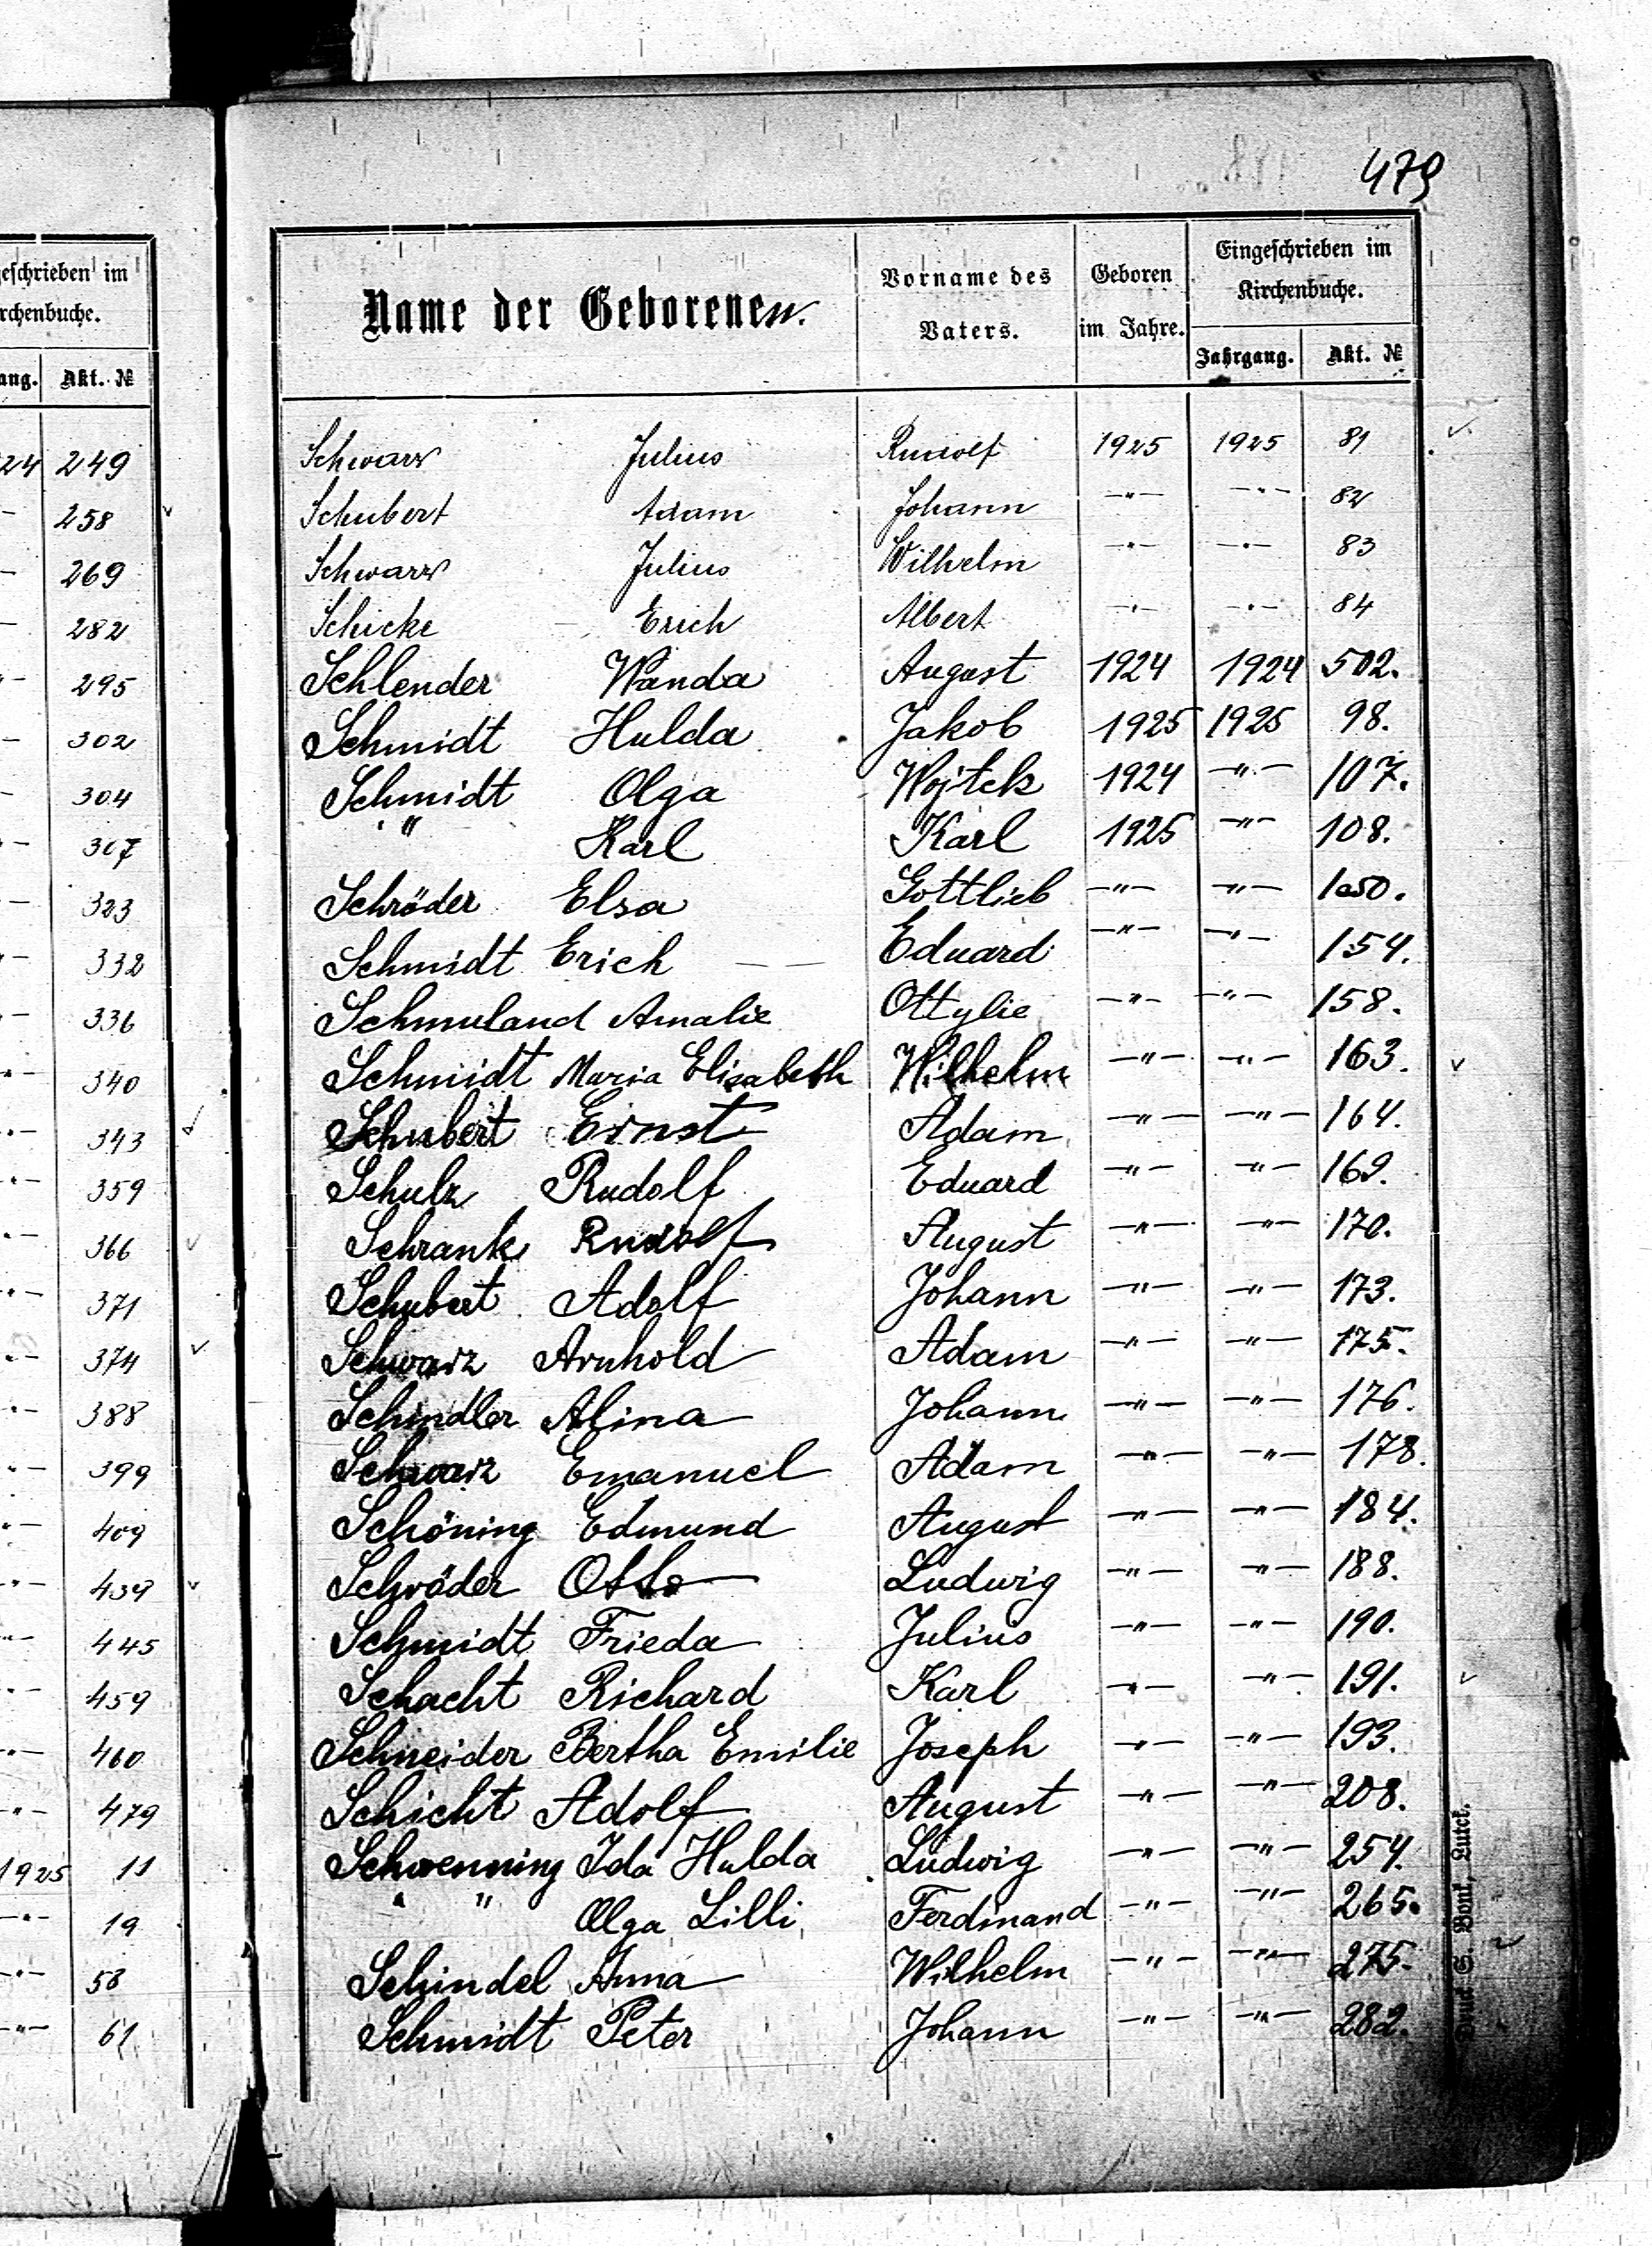 479
geschrieben im
rchenbuche.
ang. Akt. №
24 249
— 258
— 269
— 282
"— 295
— 302
— 304
"— 307
— 323
"— 332
"— 336
"— 340
"— 343
"— 359
"— 366
"— 371
"— 374
"— 388
"— 399
"— 409
"— 439
"— 445
"— 459
"— 460
"— 479
1925 11
—"— 19
—"— 58
—"— 61
Name der Geborenen. Vorname des Vaters. Geboren im Jahre. Eingeschrieben im Kirchenbuche.
Jahrgang. Akt. №
Schwarz Julius Rudolf 1925 1925 81
Schubert Adam Johann —"— —"— 82
Schwarz Julius Wilhelm —"— —"— 83
Schicke Erich Albert —"— —"— 84
Schlender Wanda August 1924 1924 502.
Schmidt Hulda Jakob 1925 1925 98.
Schmidt Olga Wojtek 1924 —"— 107.
" Karl Karl 1925 —"— 108.
Schröder Elsa Gottlieb —"— —"— 150.
Schmidt Erich Eduard —"— —"— 154.
Schmuland Amalie Ottylie —"— —"— 158.
Schmidt Maria Elisabeth Wilhelm —"— —"— 163.
Schubert Ernst Adam —"— —"— 164.
Schulz Rudolf Eduard —"— —"— 169.
Schrank Rudolf August —"— —"— 170.
Schubert Adolf Johann —"— —"— 173.
Schwarz Arnhold Adam —"— —"— 175.
Schindler Alina Johann —"— —"— 176.
Schwarz Emanuel Adam —"— —"— 178.
Schöning Edmund August —"— —"— 184.
Schröder Otto Ludwig —"— —"— 188.
Schmidt Frieda Julius —"— —"— 190.
Schacht Richard Karl —"— —"— 191.
Schneider Bertha Emilie Joseph —"— —"— 193.
Schicht Adolf August —"— —"— 208.
Schwenning Ida Hulda Ludwig —"— —"— 254.
" " Olga Lilli Ferdinand —"— —"— 265.
Schindel Anna Wilhelm —"— —"— 275.
Schmidt Peter Johann —"— —"— 282.
Druck S. Bonk, Lutck.